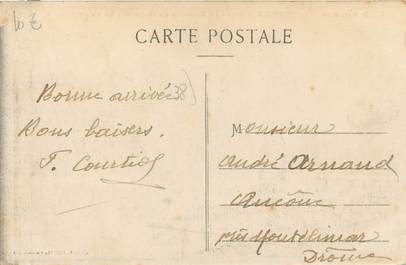 10 €
CARTE POSTALE
Bonne arrivée
38)
Bons baisers.
Monsieur
André Arnaud
Ancône
près Montélimar
Drôme